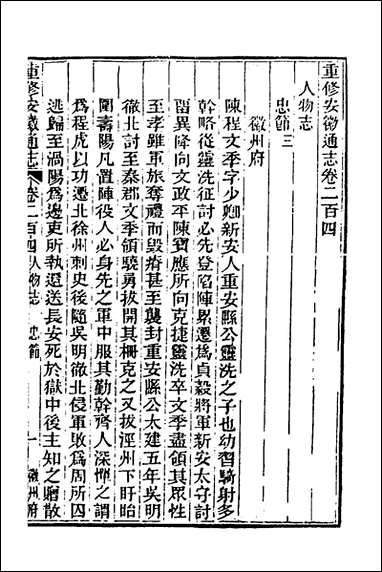 重修安徽通志卷二百四
人物志
忠節三
徽州府
陳程文季字少卿新安人重安縣公靈洗之子也幼習騎射多
幹略從靈洗征討必先登陷陳累遷爲貞毅將軍新安太守討
留異降向文政平陳寶應所向克捷靈洗卒文季盡領其眾性
至孝雖軍旅奪禮而毀瘠甚至襲封重安縣公太建五年吳明
徹北討至秦郡文季領驍勇拔開其柵克之又拔涇州下盱眙
圍壽陽凡置陣役人必身先之軍中服其勤幹齊人深憚之謂
爲程虎以功遷北徐州刺史後隨吳明徹北侵軍敗爲周所囚
逃歸至渦陽爲邊吏所執還送長安死於獄中後主知之贈散
重修安徽通志
卷二百四人物志 忠節
一
徽州府